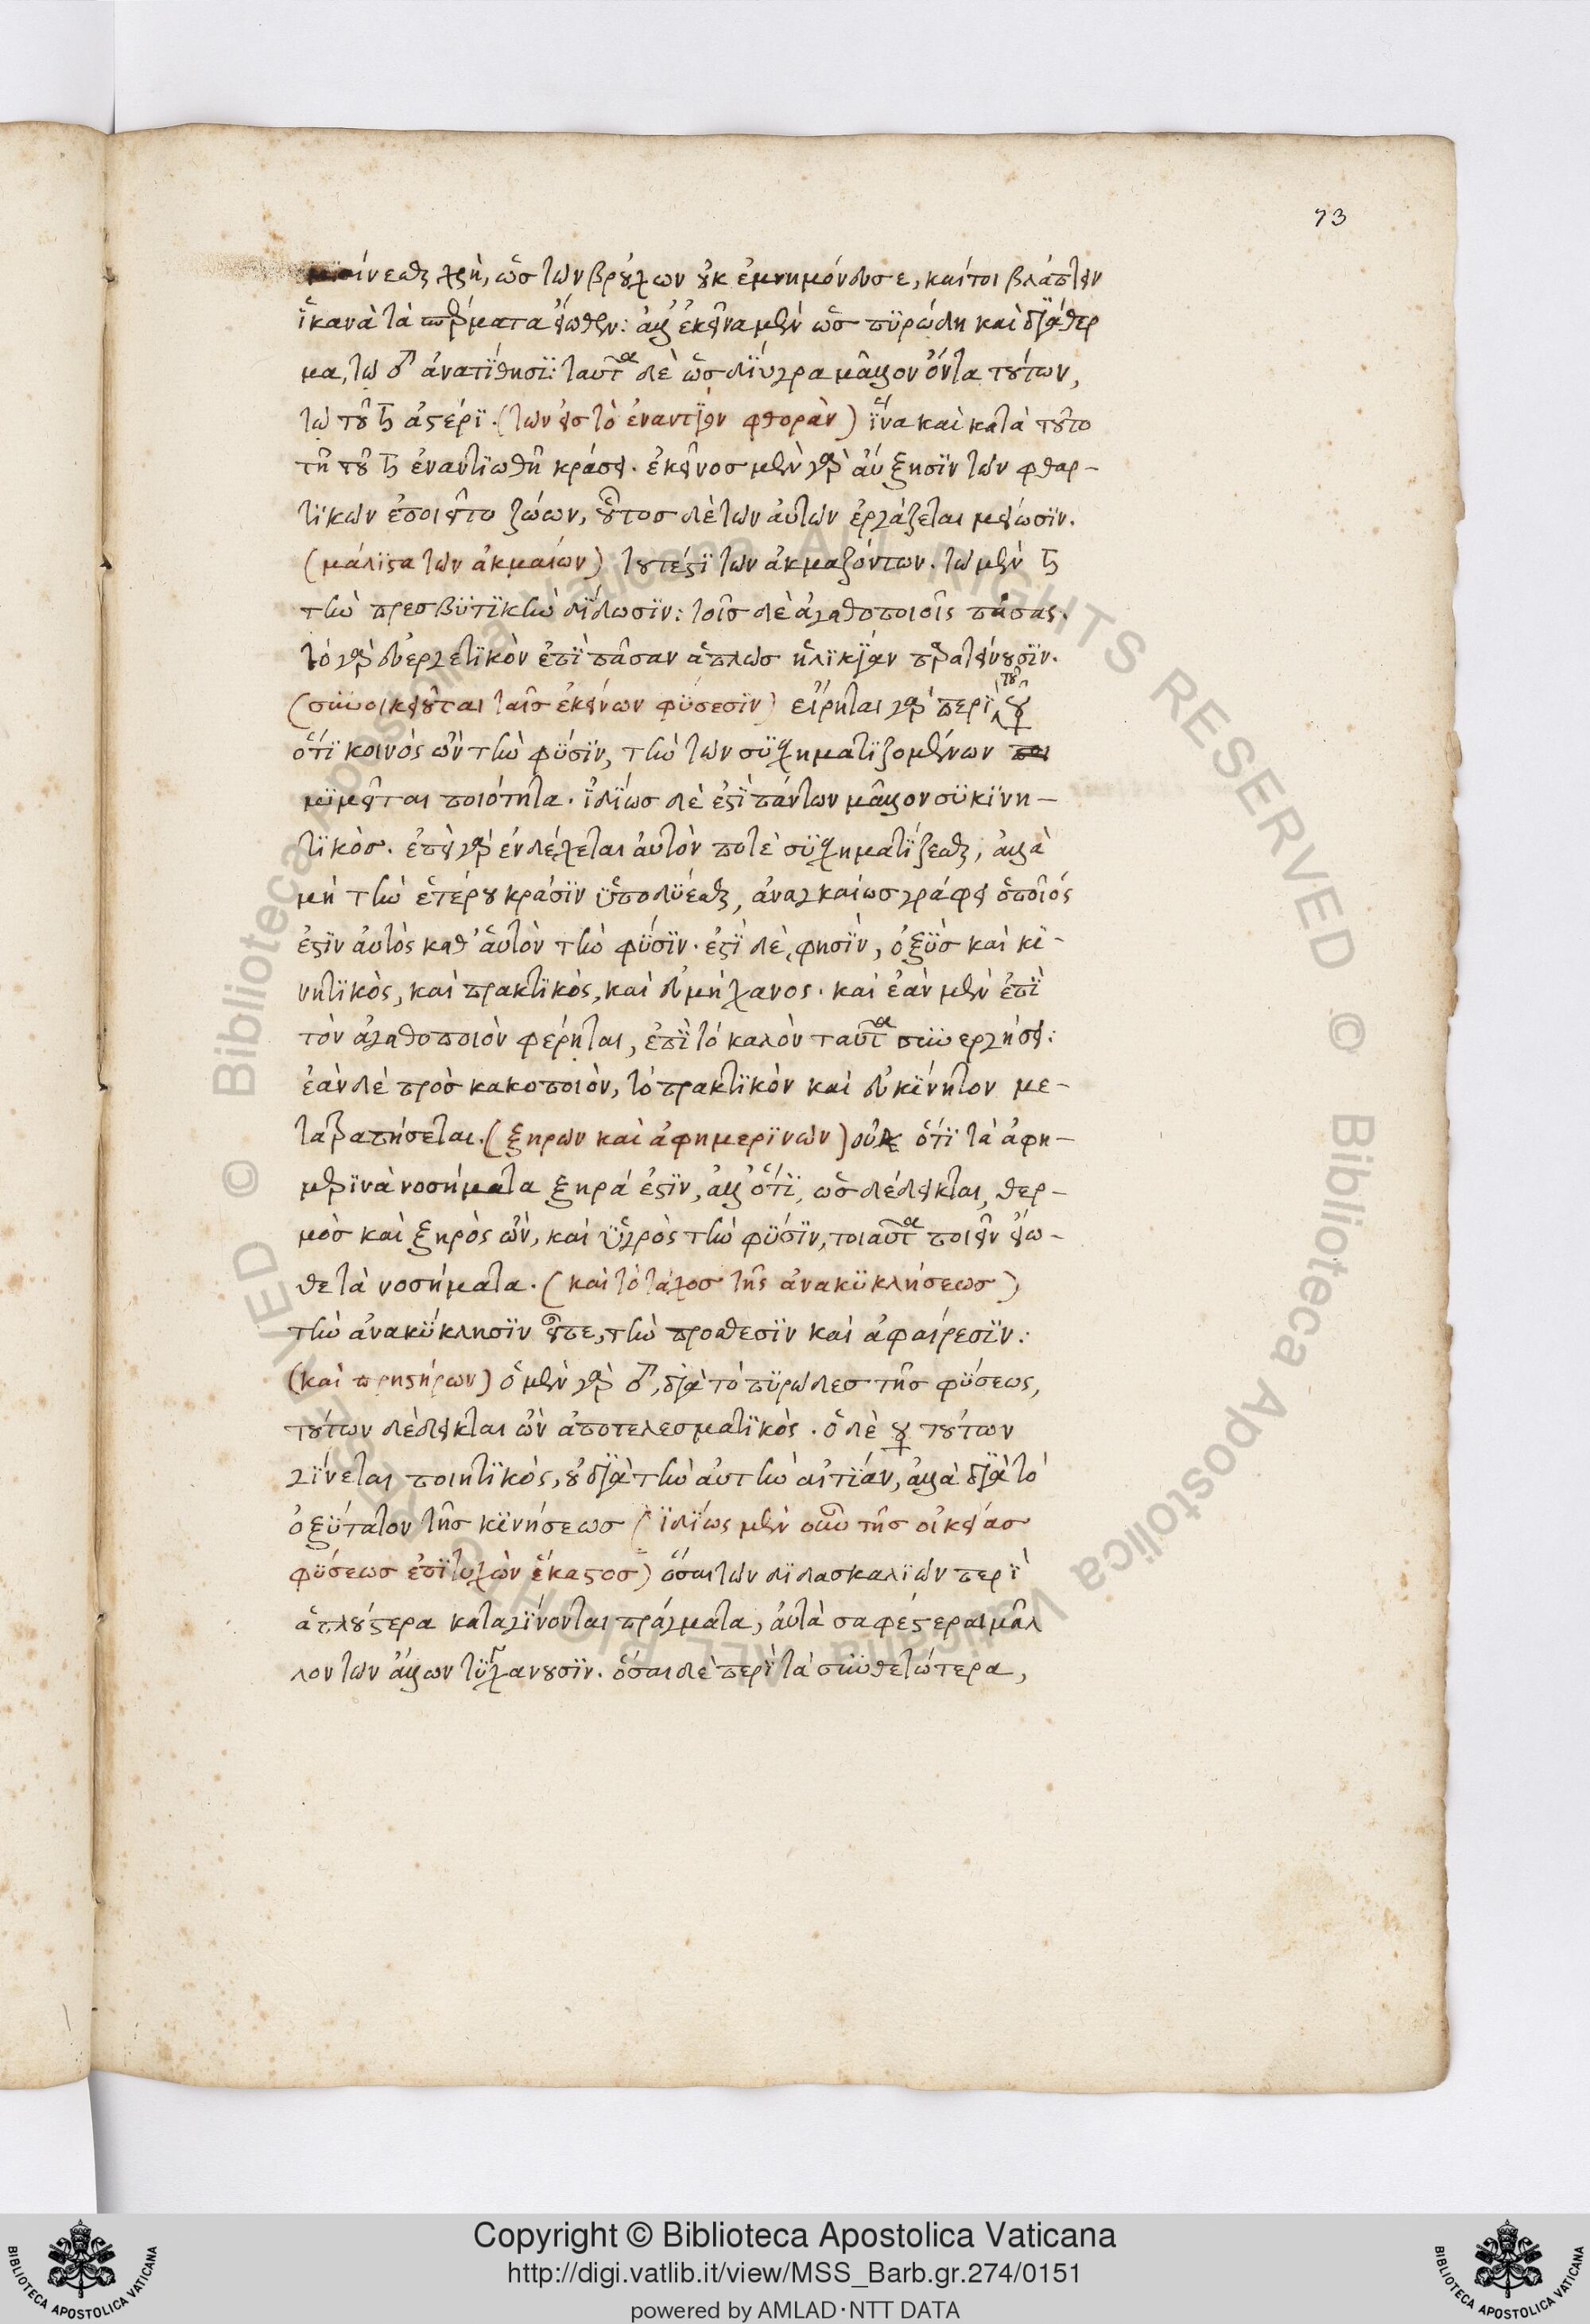 73
χρὴ, ὡς τῶν βρούχων οὐκ ἐμνημόνευσε, καίτοι βλάπτειν
ἱκανὰ τὰ σπέρματα εἰωθεν: ἀλλ' ἐκεῖνα μὲν ὡς πυρώδη καὶ διάθερ
μα, τῶ ♂ ἀνατίθησι: ταῦτα δὲ ὡς δίυγρα μᾶλλον ὄντα τούτων,
τῶ τοῦ ♄ ἀστέρι. (τῶν εἰς τὸ ἐναντίον φθορὰν) ἵνα καὶ κατὰ τοῦτο
τῆ τοῦ ♄ ἐναντιωθῆ κράσει. ἐκεῖνος μὲν γὰρ αὔξησιν τῶν φθαρ-
τικῶν ἐποιεῖτο ζώων, οὗτος δὲ τῶν αὐτῶν ἐργάζεται μείωσιν.
(μάλιστα τῶν ἀκμαίων) τουτέστι τῶν ἀκμαζόντων. τῶ μὲν ♄
τὴν πρεσβυτικὴν δίδωσιν: τοῖς δὲ ἀγαθοποιοῖς πάσας.
τὸ γὰρ εὐεργετικὸν ἐπὶ πᾶσαν ἁπλῶς ἡλικίαν παρατείνουσιν.
(συνοικειοῦται ταῖς ἐκείνων φύσεσιν) εἴρηται γὰρ περὶ τοῦ ☿
ὅτι κοινὸς ὢν τὴν φύσιν, τὴν τῶν συσχηματιζομένων
μιμεῖται ποιότητα. ἰδίως δὲ ἐστὶ πάντων μᾶλλον συκινη-
τικός. ἐπεὶ γὰρ ἐνδέχεται αὐτὸν ποτὲ συσχηματίζεσθαι, ἀλλὰ
μὴ τὴν ἑτέρου κράσιν ὑποδύεσθαι, ἀναγκαίως γράφει ὁποῖός
ἐστιν αὐτὸς καθ' αὑτὸν τὴν φύσιν. ἐστὶ δὲ, φησὶν, ὀξὺς καὶ κι-
νητικὸς, καὶ πρακτικὸς, καὶ εὐμήχανος. καὶ ἐὰν μὲν ἐπὶ
τὸν ἀγαθοποιὸν φέρηται, ἐπὶ τὸ καλὸν ταῦτα συνεργήσει:
ἐὰν δὲ πρὸς κακοποιὸν, τὸ πρακτικὸν καὶ εὐκίνητον με-
ταβαπήσεται. (ξηρῶν καὶ ἀφημερινῶν) οὐκ ὅτι τὰ ἀφη-
μερινὰ νοσήματα ξηρά ἐστιν, ἀλλ' ὅτι, ὡς δέδεικται, θερ-
μὸς καὶ ξηρὸς ὢν, καὶ ὑγρὸς τὴν φύσιν, τοιαῦτα ποιεῖν εἰώ-
θε τὰ νοσήματα. (καὶ τὸ τάχος τῆς ἀνακυκλήσεως)
τὴν ἀνακύκλησιν εἶπε, τὴν πρόσθεσιν καὶ ἀφαίρεσιν:
(καὶ πρηστήρων) ὁ μὲν γὰρ ♂, διὰ τὸ πυρῶδες τῆς φύσεως,
τούτων δέδεικται ὢν ἀποτελεσματικός. ὁ δὲ ☿ τούτων
γίνεται ποιητικὸς, οὐ διὰ τὴν αὐτὴν αἰτίαν, ἀλλὰ διὰ τὸ
ὀξύτατον τῆς κινήσεως (ἰδίως μὲν οὖν τῆς οἰκείας
φύσεως ἐπιτυχὼν ἕκαστος) ὅσαι τῶν διδασκαλιῶν περὶ
ἁπλούστερα καταγίνονται πράγματα, αὐτὰ σαφέστεραι μᾶλ
λον τῶν ἄλλων τυγχάνουσιν. ὅσαι δὲ περὶ τὰ συνθετώτερα,
© Biblioteca Apostolica Vaticana ALL RIGHTS RESERVED © Biblioteca Apostolica Vaticana ALL RIGHTS RESERVED
Copyright © Biblioteca Apostolica Vaticana
http://digi.vatlib.it/view/MSS_Barb.gr.274/0151
powered by AMLAD·NTT DATA
BIBLIOTECA APOSTOLICA VATICANA
BIBLIOTECA APOSTOLICA VATICANA